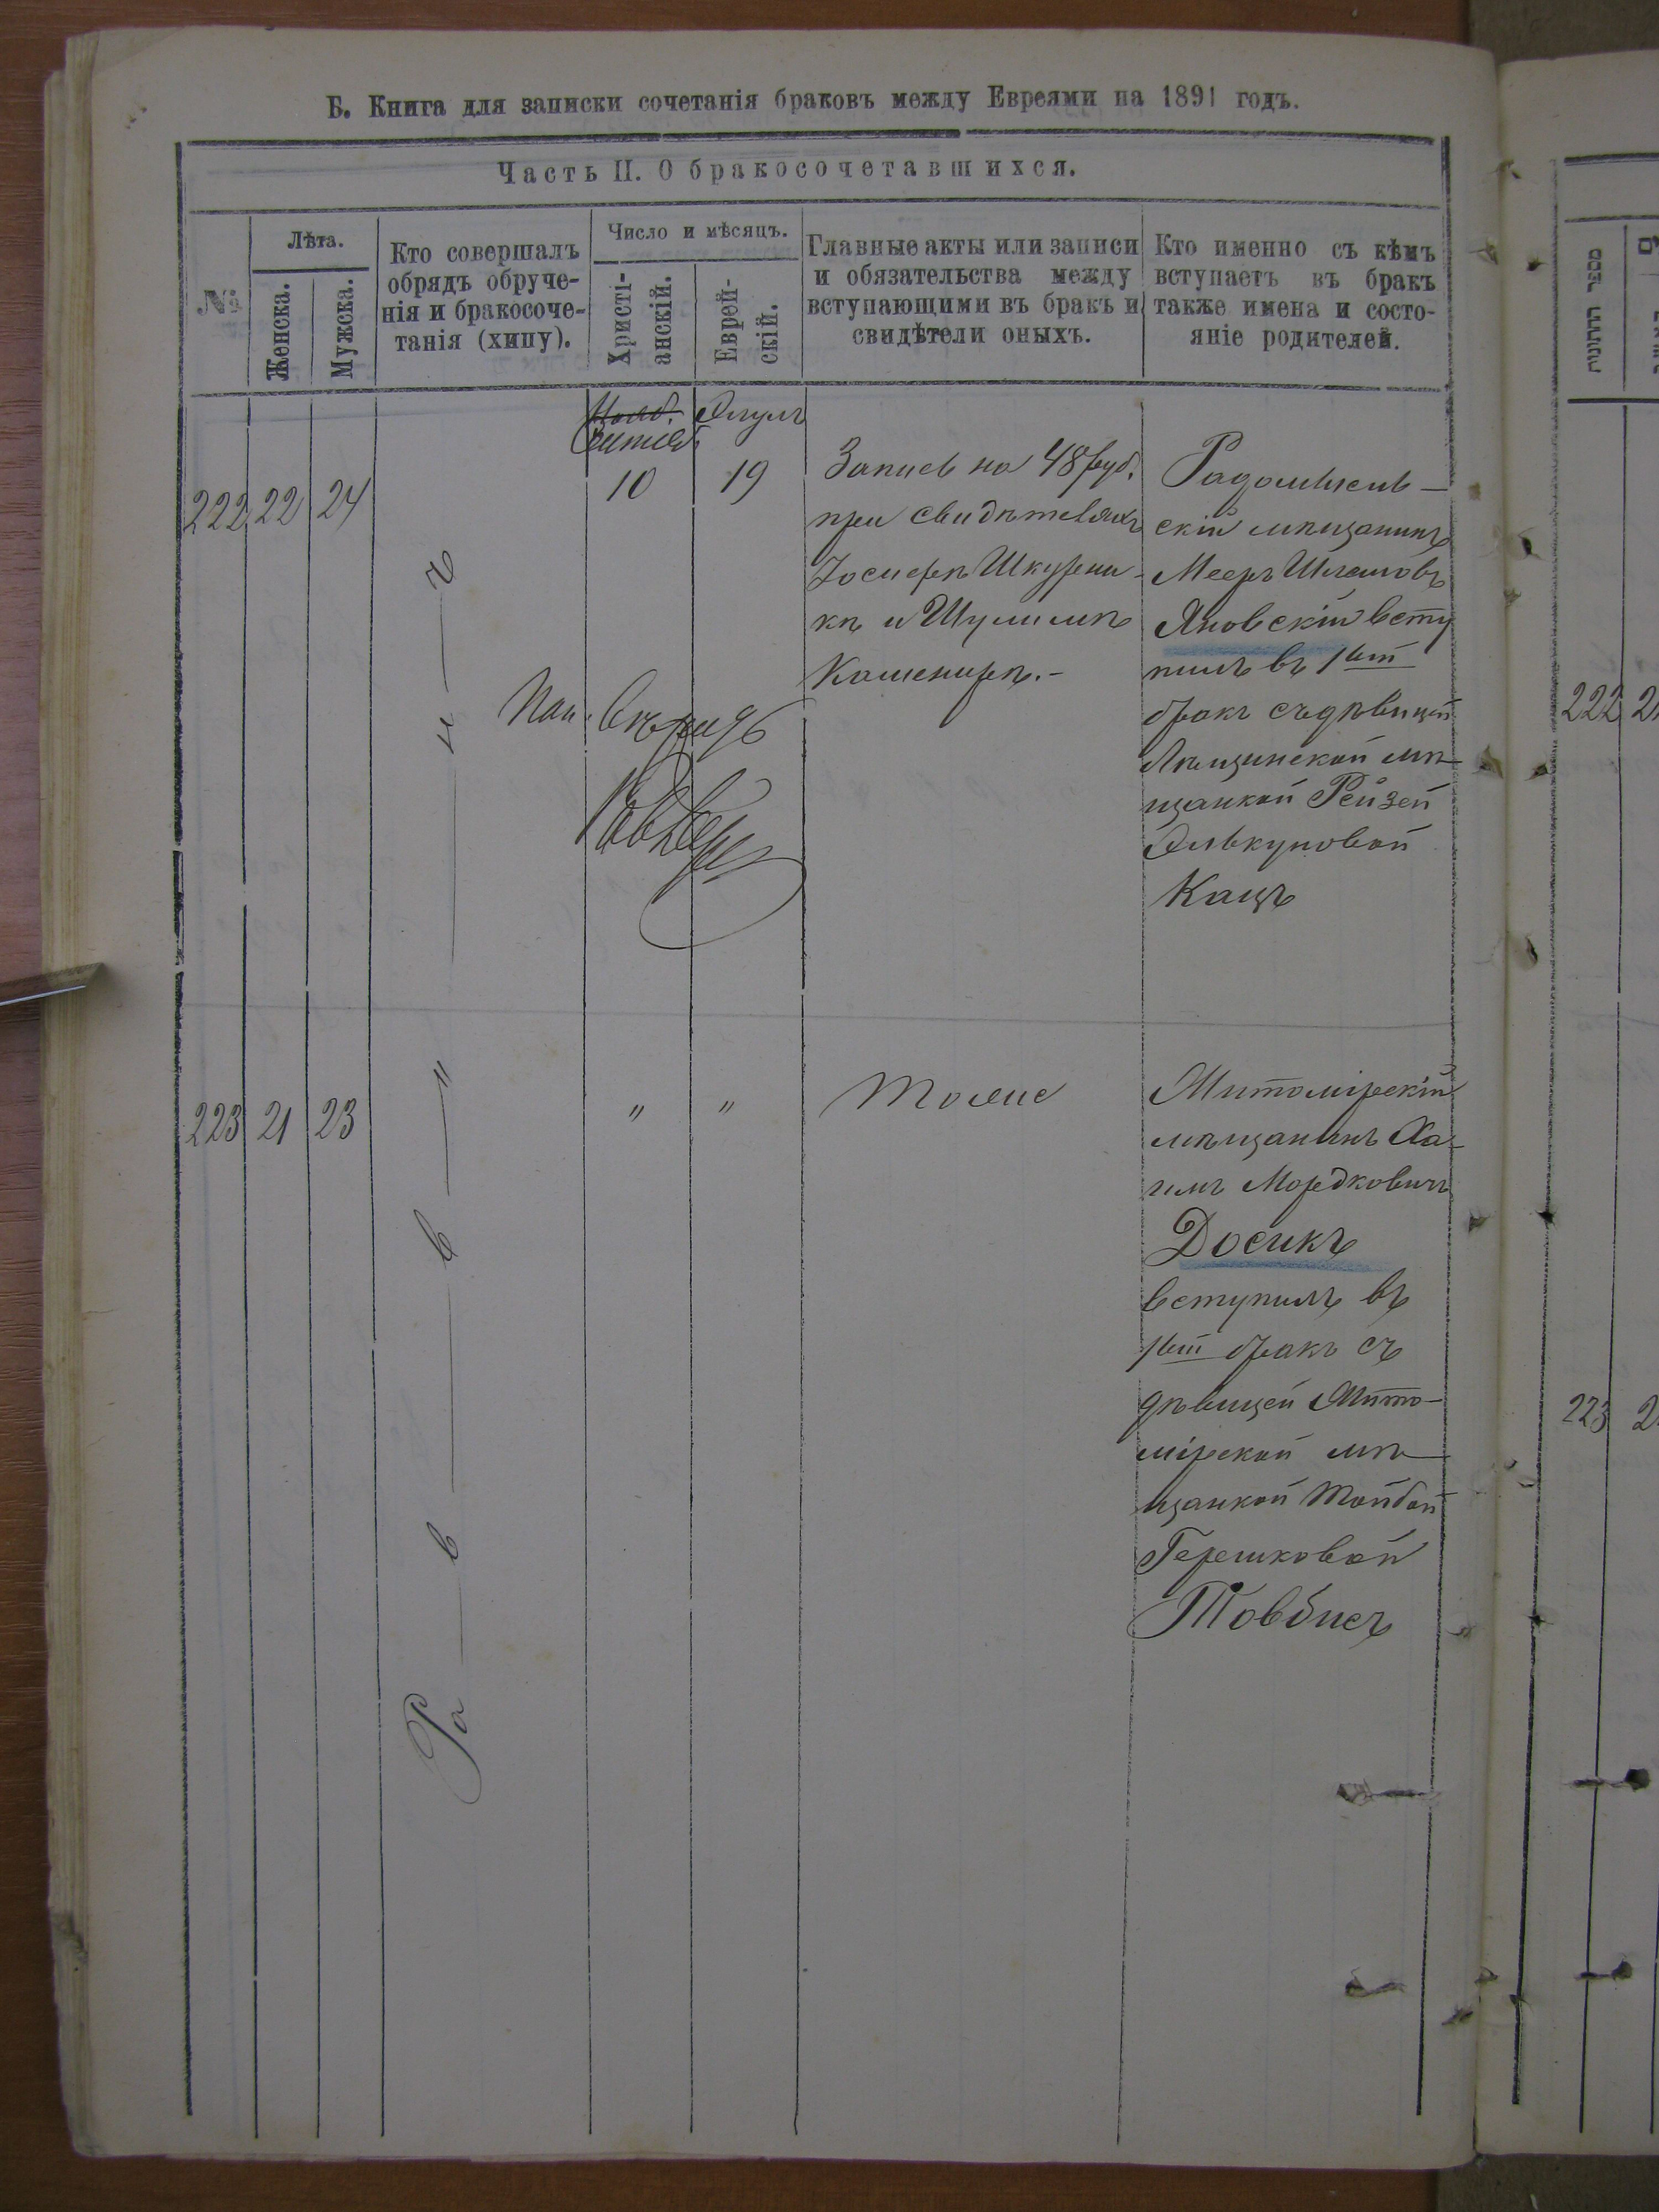 Б. Книга для записки сочетанія браковъ между Евреями на 1891 годъ.
Часть II. О бракосочетавшихся.
№
Лѣта.
Женска.
Мужска.
Кто совершалъ
обрядъ обруче-
нія и бракосоче-
танія (хипу).
Число и мѣсяцъ.
Христі-
анскій.
Еврей-
скій.
Главные акты или записи
и обязательства между
вступающими въ бракъ и
свидѣтели оныхъ.
Кто именно съ кѣмъ
вступаетъ въ бракъ
также имена и состо-
яніе родителей.
מספר החתונות
Сентяб. Элулъ
222 22 24
10 19
Запись на 48 руб.
при свидѣтеляхъ
Іосифѣ Шкурни-
кѣ и Шулимѣ
Кашенирѣ.-
Радомысль-
скій мѣщанинъ
Мееръ Шлемовъ
Яновскій всту
пилъ въ 1ый
бракъ съ дѣвицей
мѣ-
щанкой Рейзей
Элькуновой
Кацъ
Раввинъ
223 21 23
" "
Тоже
Житомірскій
мѣщанинъ Ха-
имъ Мордковичъ
Досикъ
вступилъ въ
1ый бракъ съ
дѣвицей Жито-
мірской мѣ-
щанкой Тойбой
Гершковой
Товбисъ
222 2
223 2